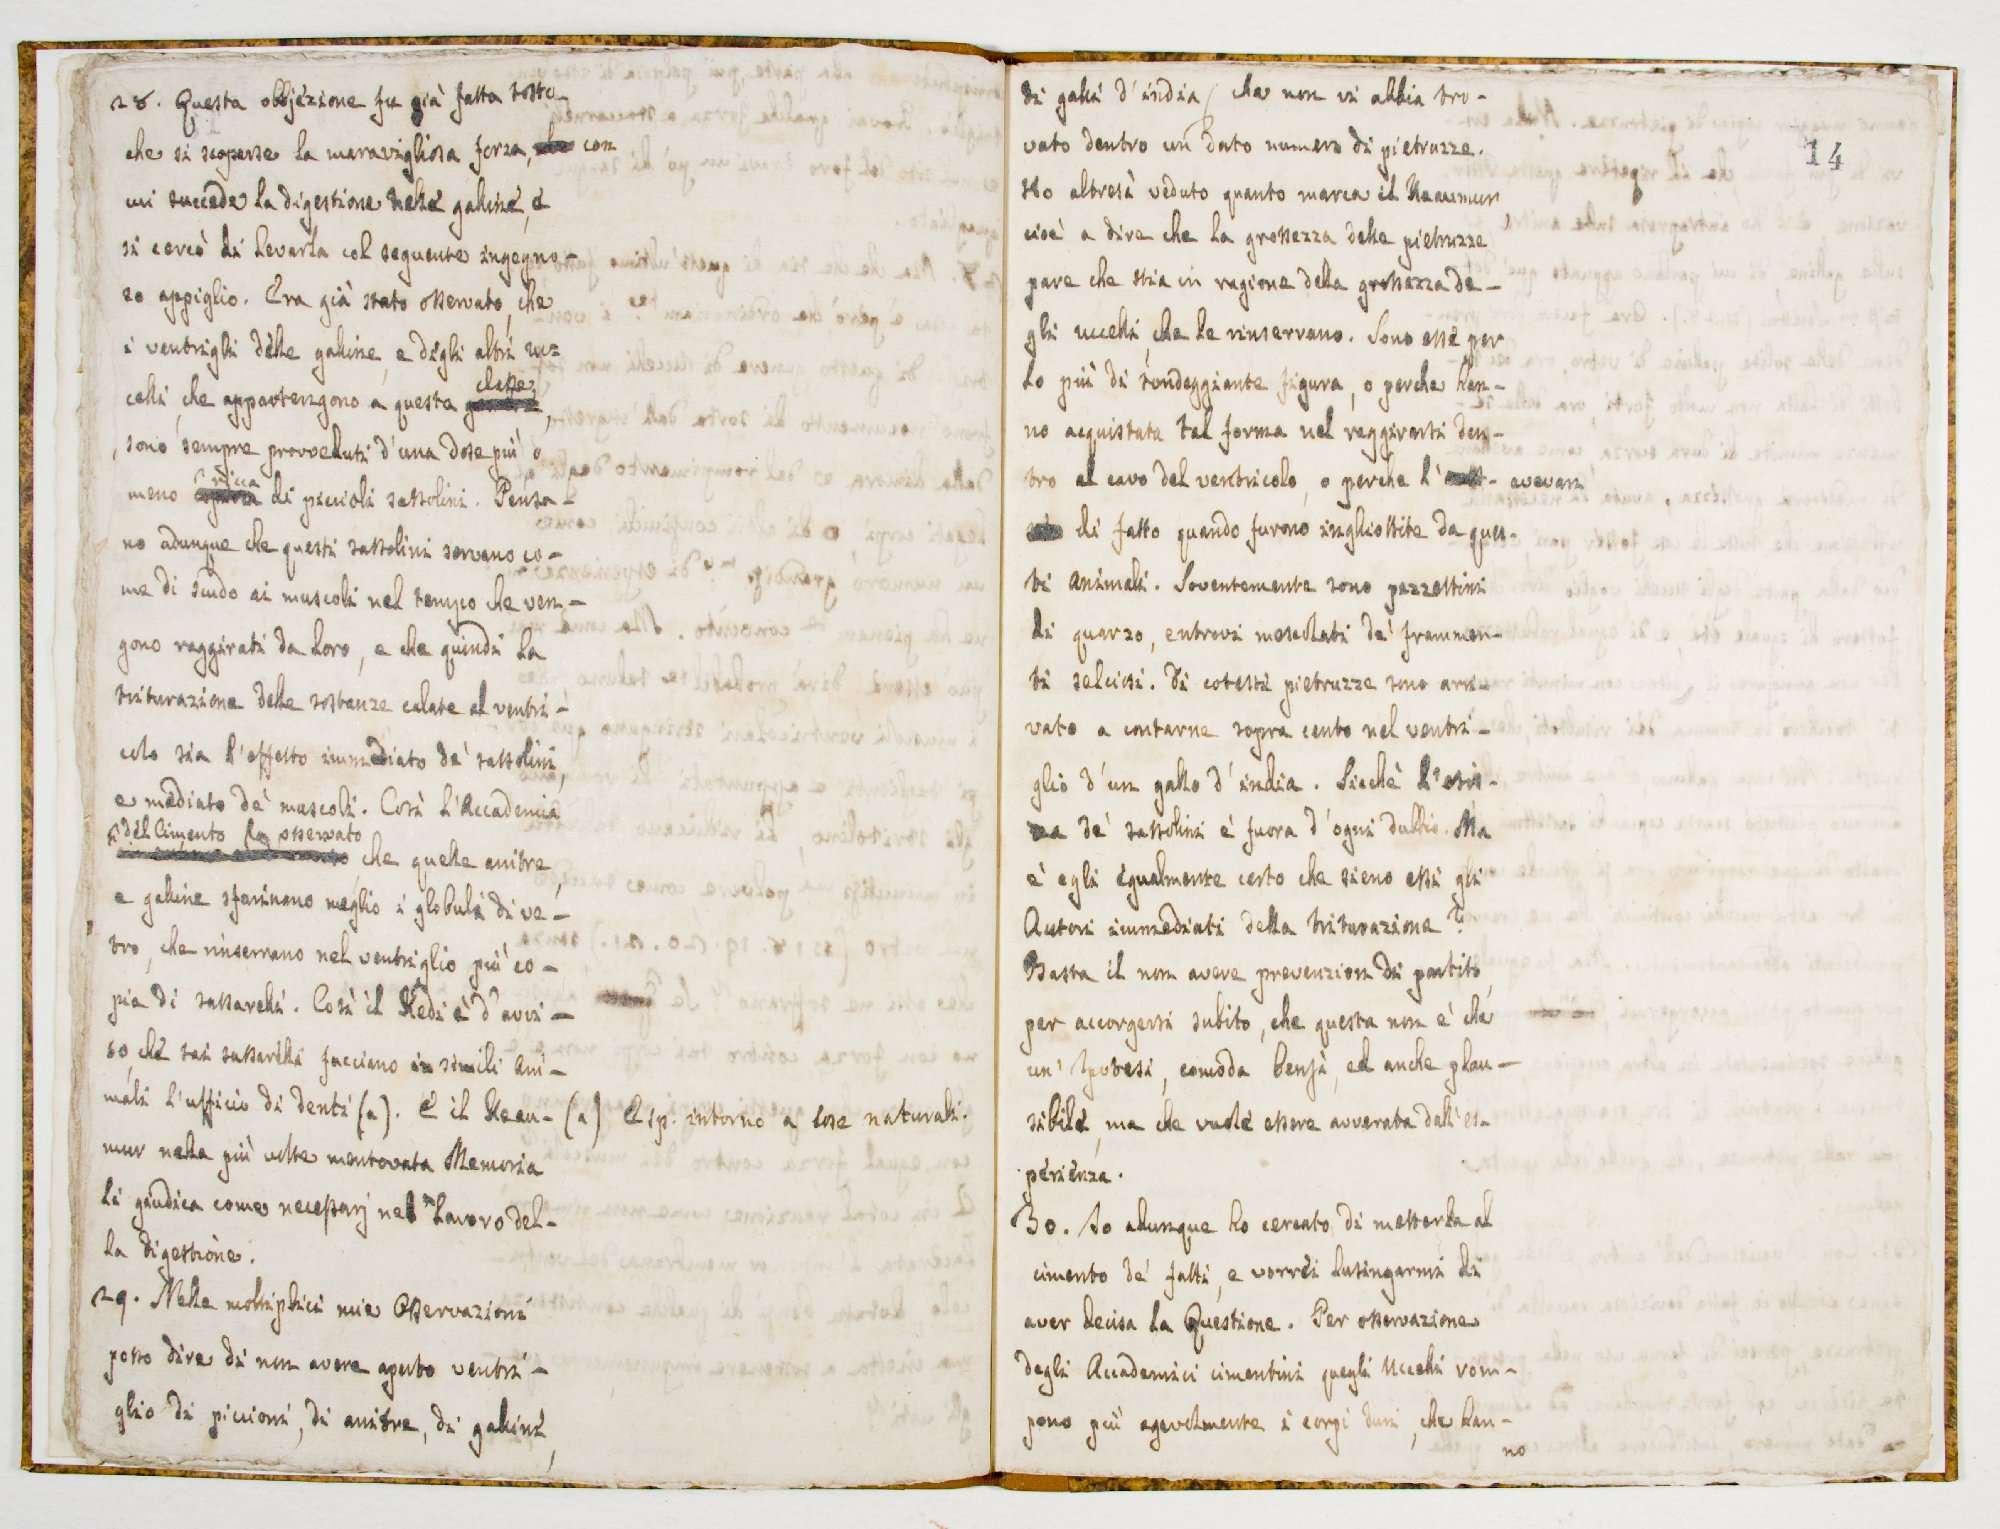 28. Questa obbjezione fu già fatta tosto
che si scoperse la maravigliosa forza, con
cui succede la digestione nelle galline, e
si cercò di levarla col seguente ingegno-
so appiglio. Era già stato osservato, che
i ventrigli delle galline, e degli altri uc-
classe,
celli, che appartengono a questa
sono sempre provveduti d'una dose più o
ricca
meno di piccioli sassolini. Pensa-
no adunque che questi sassolini servano co-
me di scudo ai muscoli nel tempo che ven-
gono raggirati da loro, e che quindi la
triturazione delle sostanze calate al ventri-
colo sia l'effetto immediato de' sassolini,
e mediato de' muscoli. Così l'Accademia
del Cimento ha osservato
che quelle anitre,
e galline sfarinano meglio i globuli di ve-
tro, che rinserrano nel ventriglio più co-
pia di sassarelli. Così il Redi è d'avvi-
so, che tai sassarelli facciano in simili ani-
mali l'ufficio di denti (a). E il Reau-
(a) Esp. intorno a cose naturali.
mur nella più volte mentovata Memoria
li giudica come necessarj nel lavoro del-
la digestione.
29. Nelle moltiplici mie Osservazioni
posso dire di non avere aperto ventri-
glio di piccioni, di anitre, di galline,
14
di galli d'india, che non vi abbia tro-
vato dentro un dato numero di pietruzze.
Ho altresì veduto quanto marca il Reaumur,
cioè a dire che la grossezza delle pietruzze
pare che stia in ragione della grossezza de-
gli uccelli, che le rinserrano. Sono esse per
lo più di tondeggiante figura, o perche han-
no acquistata tal forma nel raggirarsi den-
tro al cavo del ventricolo, o perche l' avevan
di fatto quando furono inghiottite da ques-
ti animali. Soventemente sono pezzettini
di quarzo, entrovi mescolati de' frammen-
ti selciosi. Di cotesti pietruzze sono arri-
vato a contarne sopra cento nel ventri-
glio d'un gallo d'india. Sicchè l'esis-
de' sassolini è fuora d'ogni dubbio. Ma
è egli egualmente certo che sieno essi gli
Autori immediati della triturazione?
Basta il non avere prevenzion di partito,
per accorgersi subito, che questa non è che
un' Ipotesi, comoda bensì, ed anche plau-
sibile, ma che vuole essere avverata dall'es-
perienza.
30. Io adunque ho cercato di metterla al
cimento de' fatti, e vorrei lusingarmi di
aver decisa la Questione. Per osservazione
degli Accademici cimentini quegli Uccelli rom-
pono più agevolmente i corpi duri, che han-
no